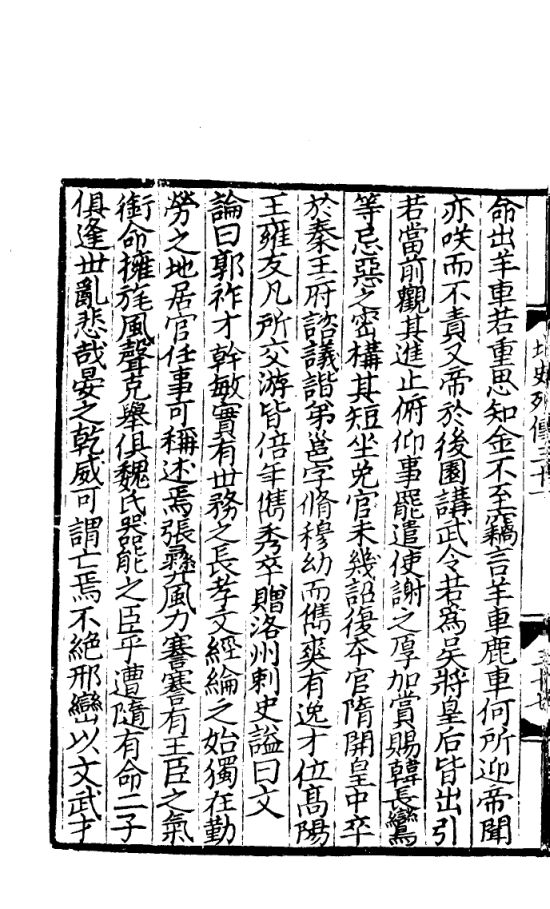 命出羊車若重思知金不至竊言羊車鹿車何所迎帝聞
亦咲而不責又帝於後園講武令若爲吴將皇后皆出引
若當前觀其進止俯仰事罷遣使謝之厚加賞賜韓長鸞
等忌惡之密構其短坐免官未幾詔復本官隋開皇中卒
於秦王府諮議諧弟邕字脩穆幼而儁爽有逸才位髙陽
王雍友凡所交游皆倍年儁秀卒贈洛州刺史謚曰文
論曰郭祚才幹敏實有世務之長孝文經綸之始獨在勤
勞之地居官任事可稱述焉張彝風力謇謇有王臣之氣
銜命擁旄風聲克舉俱魏氏器能之臣乎遭隨有命二子
俱逢世亂悲哉晏之乾威可謂亡焉不絶邢巒以文武才
北史列傳三十一